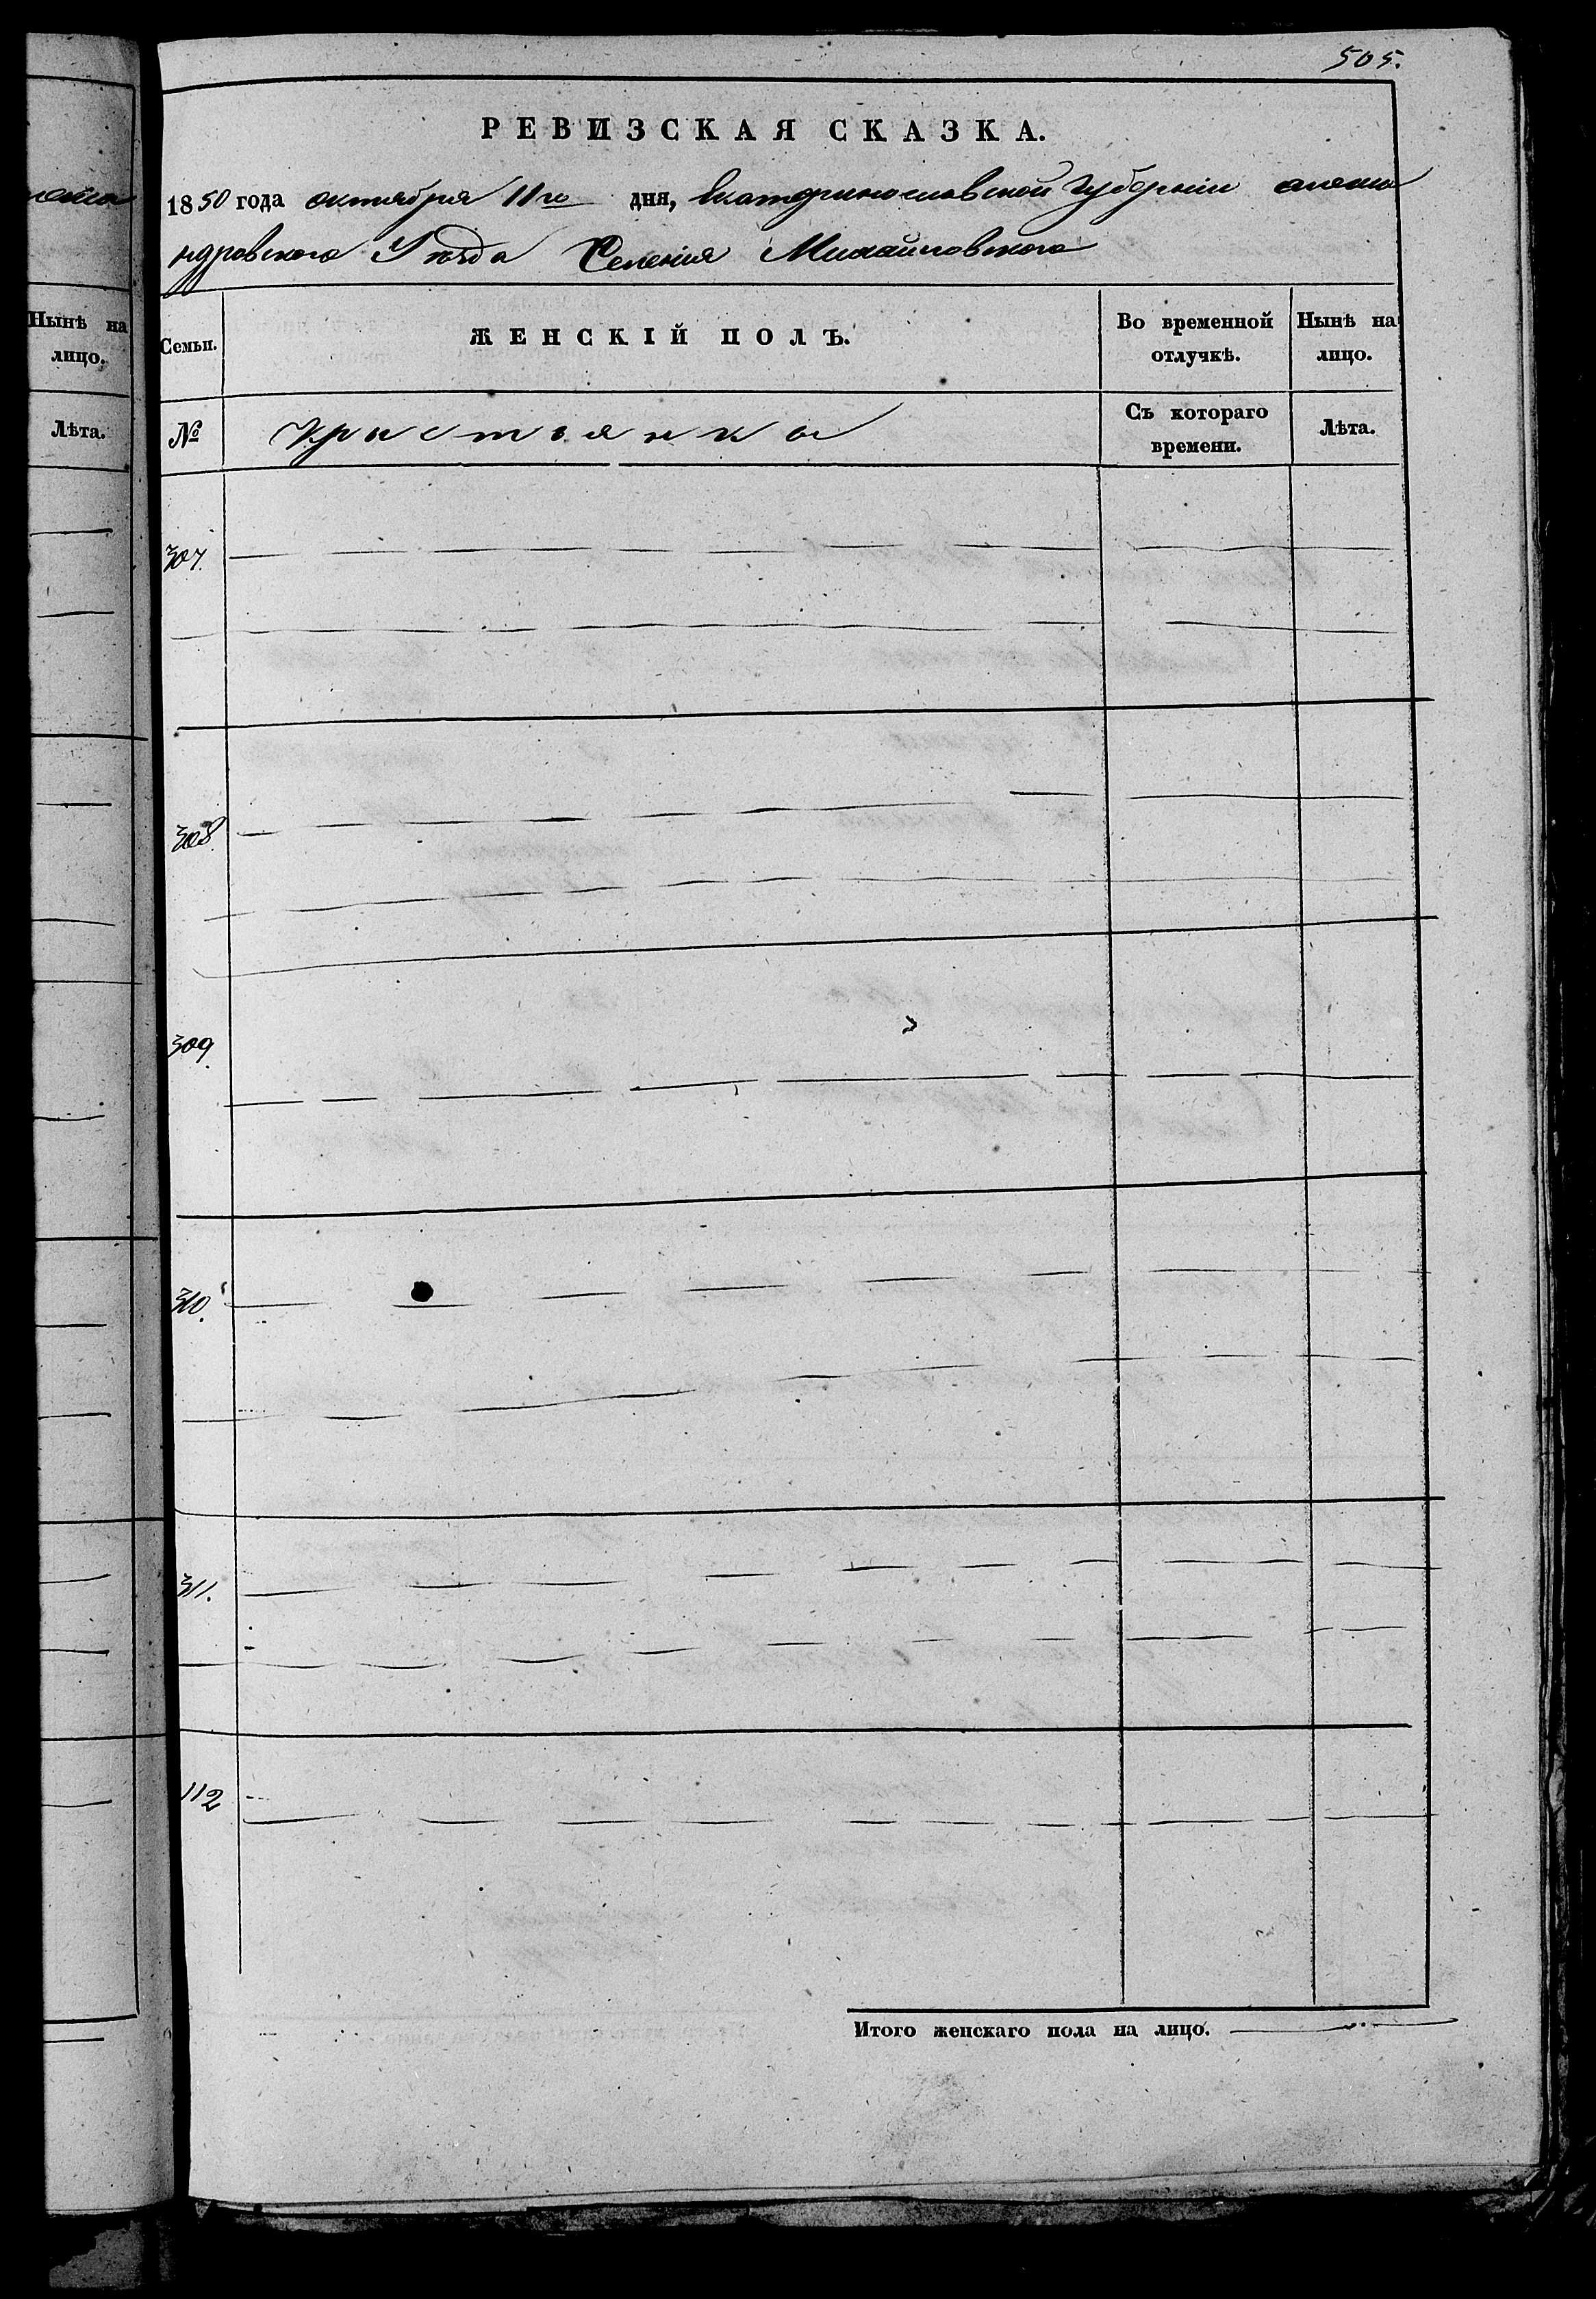 505.
РЕВИЗСКАЯ СКАЗКА.
1850 года октября 11го дня, Екатеринославской Губернии алекса
ндровского Уезда Селения Михайловского
Нынѣ на
лицо.
Лѣта.
Семьи.
ЖЕНСКІЙ ПОЛЪ.
Во временной
отлучкѣ.
Нынѣ на
лицо.
№
Крестьянки
Съ котораго
времени.
Лѣта.
307.
308.
309.
310.
311.
112
Итого женскаго пола на лицо.